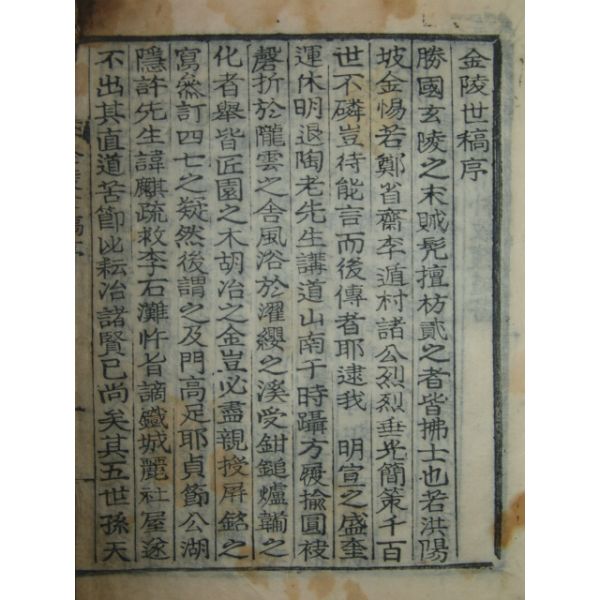 金陵世稿序
勝國玄陵之末賊髡擅枋貳之者皆拂士也若洪陽
坡金惕若鄭省齋李遁村諸公烈烈垂光簡策千百
世不磷豈待能言而後傳者耶逮我 明宣之盛奎
運休明退陶老先生講道山南于時躡方屨揄圓袂
磬折於隴雲之舍風浴於濯纓之溪受鉗鎚爐韛之
化者舉皆匠園之木胡冶之金豈必盡親授屏銘之
寫叅訂四七之疑然後謂之及門高足耶貞節公湖
隱許先生諱麒疏救李石灘忤旨謫鐵城麗社屋遂
不出其直道苦節比耘冶諸賢已尚矣其五世孫天